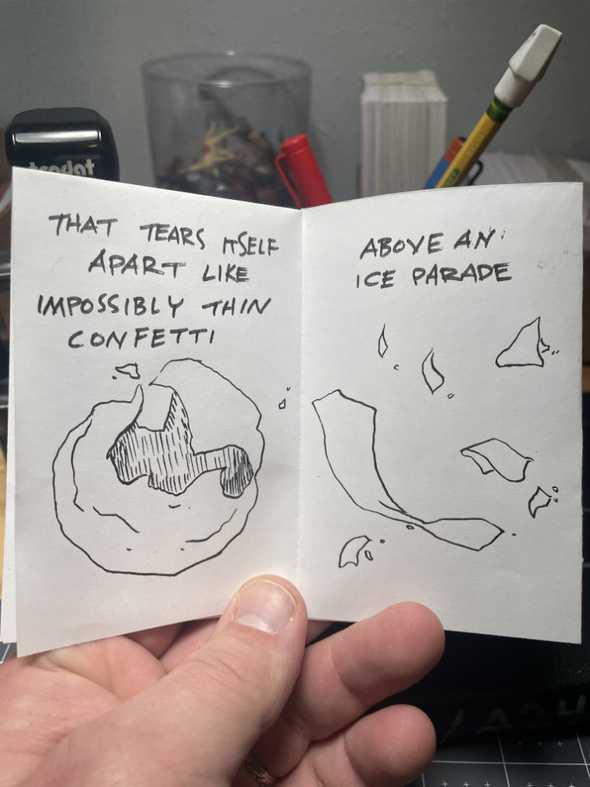 trodat
THAT TEARS ITSELF
APART LIKE
IMPOSSIBLY THIN
CONFETTI
ABOVE AN
ICE PARADE